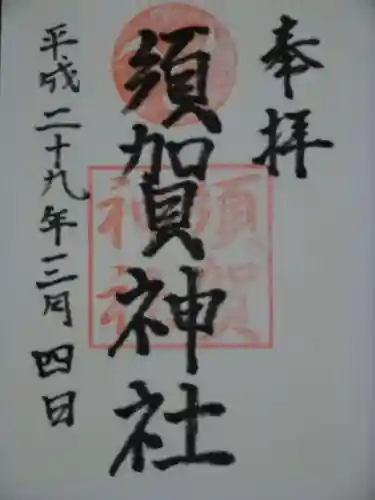 奉拝
須賀神社
須賀神社
平成二十九年三月四日